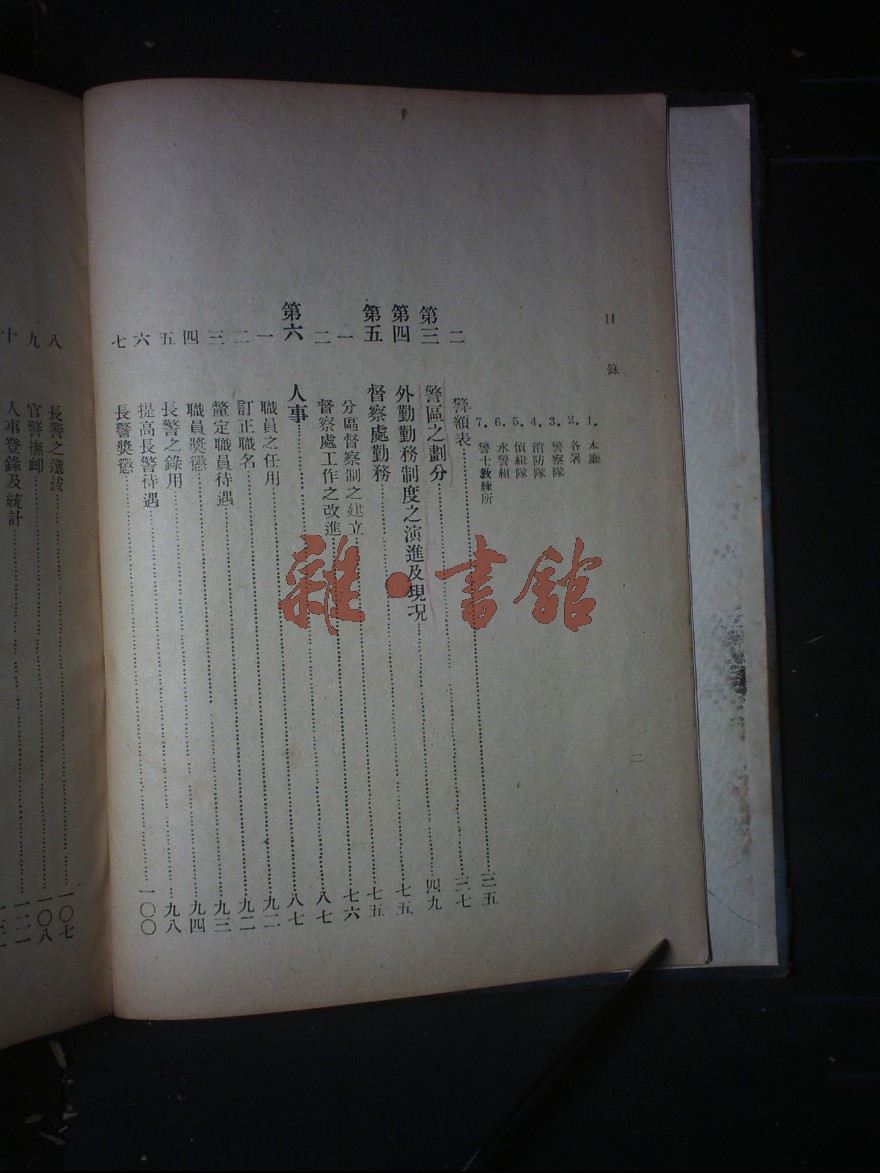 目錄
二
1. 本廳
2. 各署
3. 警察隊
4. 消防隊
5. 偵緝隊
6. 水警組
7. 警士教練所……三五
二 警額表……三七
第三 警區之劃分……四九
第四 外勤勤務制度之演進及現況……七五
第五 督察處勤務……七五
一 分區督察制之建立……七六
二 督察處工作之改進……八七
第六 人事……八七
一 職員之任用……九二
二 訂正職名……九二
三 釐定職員待遇……九三
四 職員獎懲……九四
五 長警之錄用……九八
六 提高長警待遇……一〇〇
七 長警獎懲
八 長警之選拔……一〇七
九 官警撫卹……一〇八
十 人事登錄及統計
雜·書館